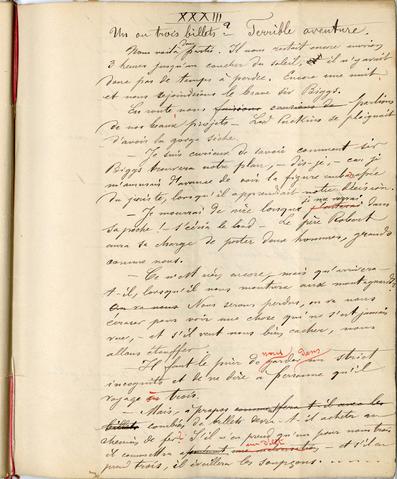 XXXIII
Un ou trois billets? - Terrible aventure.
Nous voilà donc partis. Il nous restait encore environ
3 heures jusqu'au coucher du soleil, il n'y avait
donc pas de temps à perdre. Encore une nuit
et nous rejoindrions le brave Sir Biggs.
En route nous parlions
de nos beaux projets - Lord se plaignait
d'avoir la gorge sèche.
- Je suis curieux de savoir comment Sir
Biggs trouvera notre plan, - dis-je, - car je
m'amusais d'avance de voir la figure
du quand il apprendrait notre décision.
- Je mourrai de rire lorsque je me verrai dans
sa poche! s'écria le lord - Le père Robert
aura la charge de porter deux hommes, grands
comme nous.
- Ce n'est rien, encore, mais qu'arrivera-
t-il, lorsqu'il nous montrera aux montagnards?
Nous serons perdus, on va nous
écraser pour voir une chose qui ne s'est jamais
vue, - et s'il veut nous bien cacher, nous
allons étouffer.
Il faut le prier de nous garder dans un strict
incognito et de ne dire à personne qu'il
voyage en trois.
- Mais, à propos
billets combien de billets devra-t-il acheter au
chemin de fer? S'il n'en prend qu'un pour nous trois
il commettra - et s'il en
prend trois, il éveillera les soupçons....